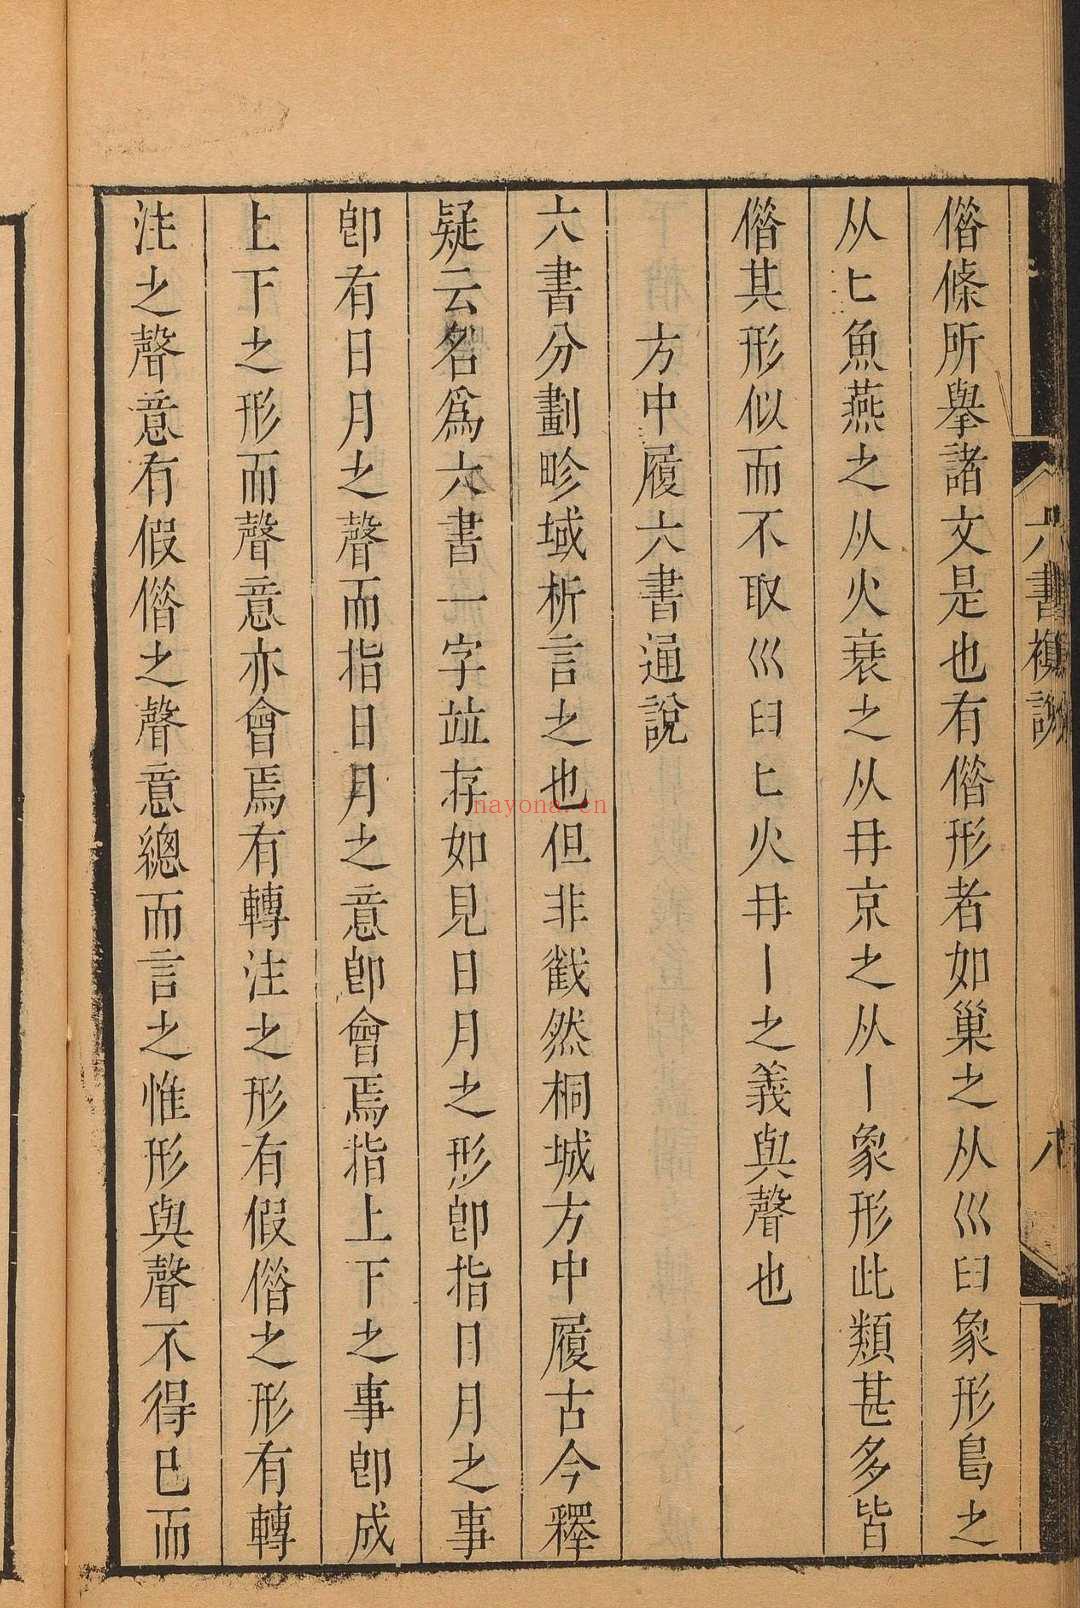 偺條所擧諸文是也有偺形者如巢之从巛臼象形鳥之
从匕魚燕之从火衰之从冄京之从丨象形此類甚多皆
偺其形似而不取巛臼匕火冄丨之義與聲也
方中履六書通說
六書分劃畛域析言之也但非截然桐城方中履古今釋
疑云名爲六書一字竝存如見日月之形卽指日月之事
卽有日月之聲而指日月之意卽會焉指上下之事卽成
上下之形而聲意亦會焉有轉注之形有假偺之形有轉
注之聲意有假偺之聲意總而言之惟形與聲不得已而
六書
八
nayona.cn